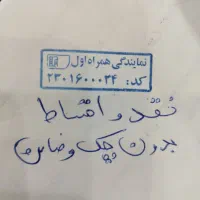 نمایندگی همراه اول
کد: ۲۳۰۱۶۰۰۰۳۴
نقد و اقساط
بدون چک و ضامن